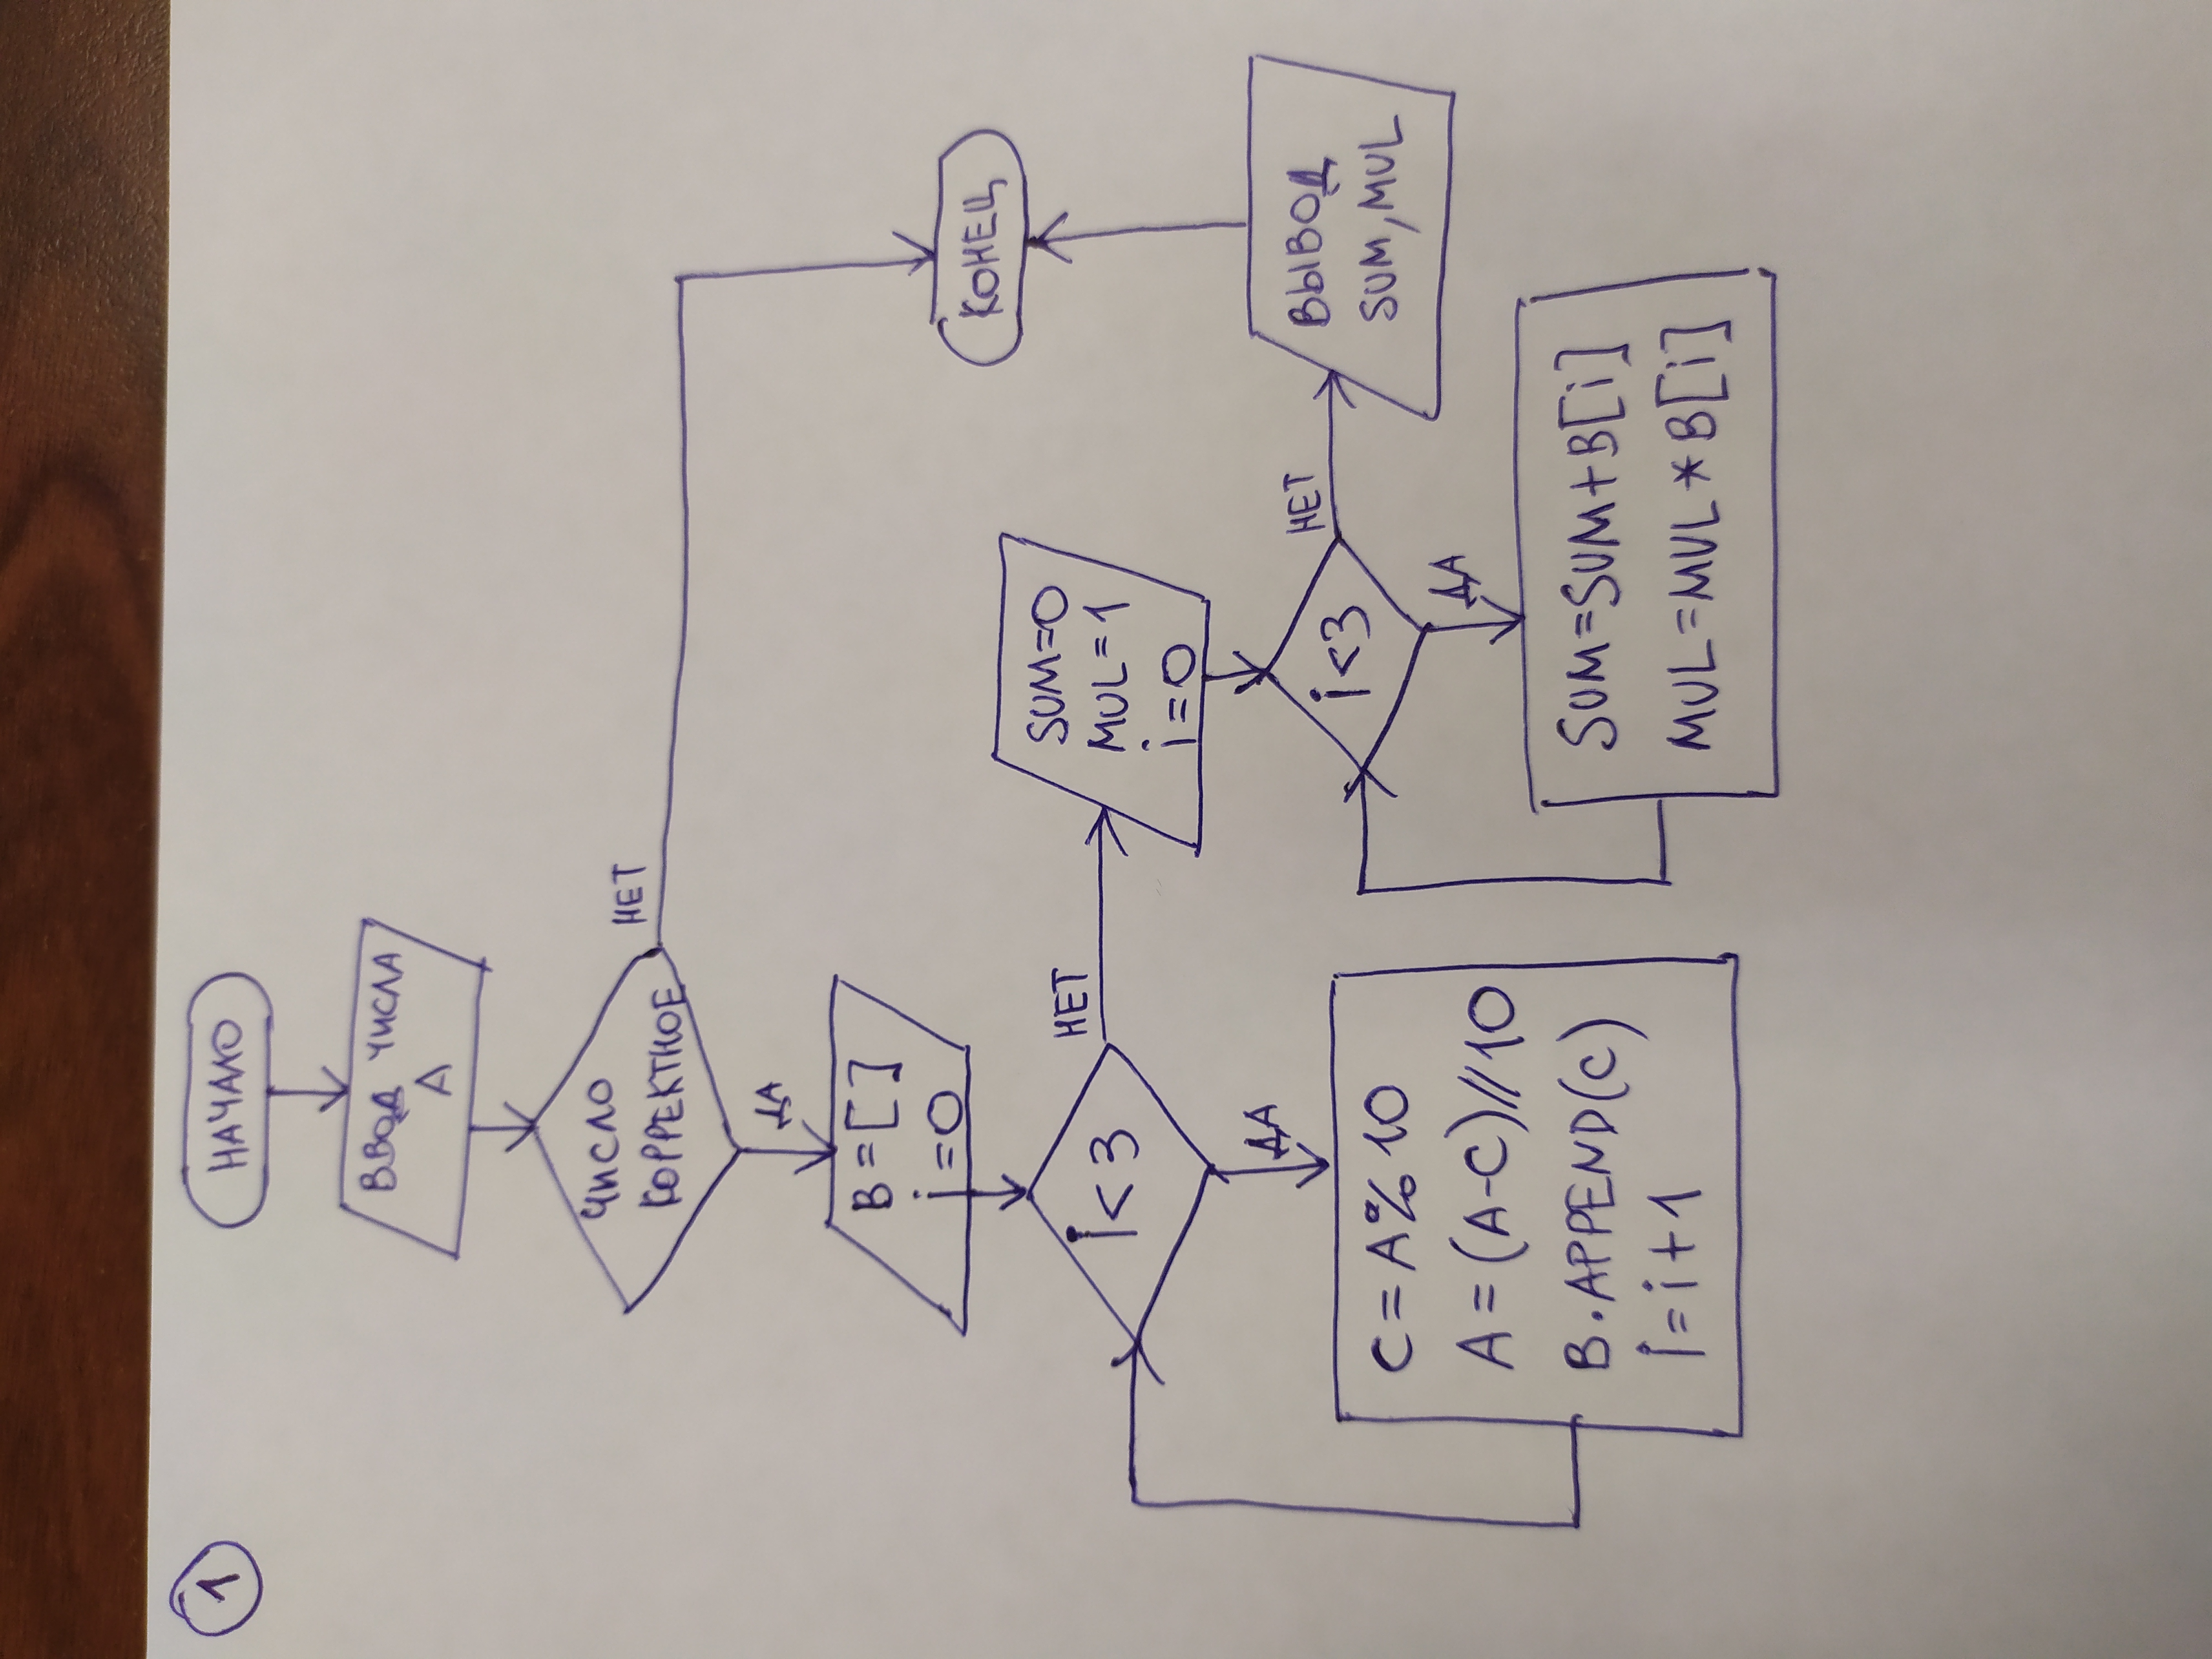 1
НАЧАЛО
ВВОД ЧИСЛА
A
ЧИСЛО
КОРРЕКТНОЕ
НЕТ
ДА
B=[]
i=0
i<3
НЕТ
ДА
C=A%10
A=(A-C)//10
B.APPEND(C)
i=i+1
SUM=0
MUL=1
i=0
i<3
НЕТ
ДА
SUM=SUM+B[i]
MUL=MUL*B[i]
ВЫВОД
SUM,MUL
КОНЕЦ